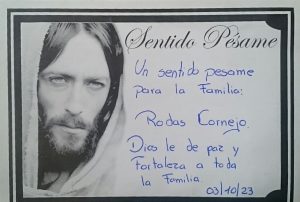 Sentido Pésame
Un sentido pesame
para la Familia:
Rodas Cornejo.
Dios le de paz y
Fortaleza a toda
la Familia.
03/10/23